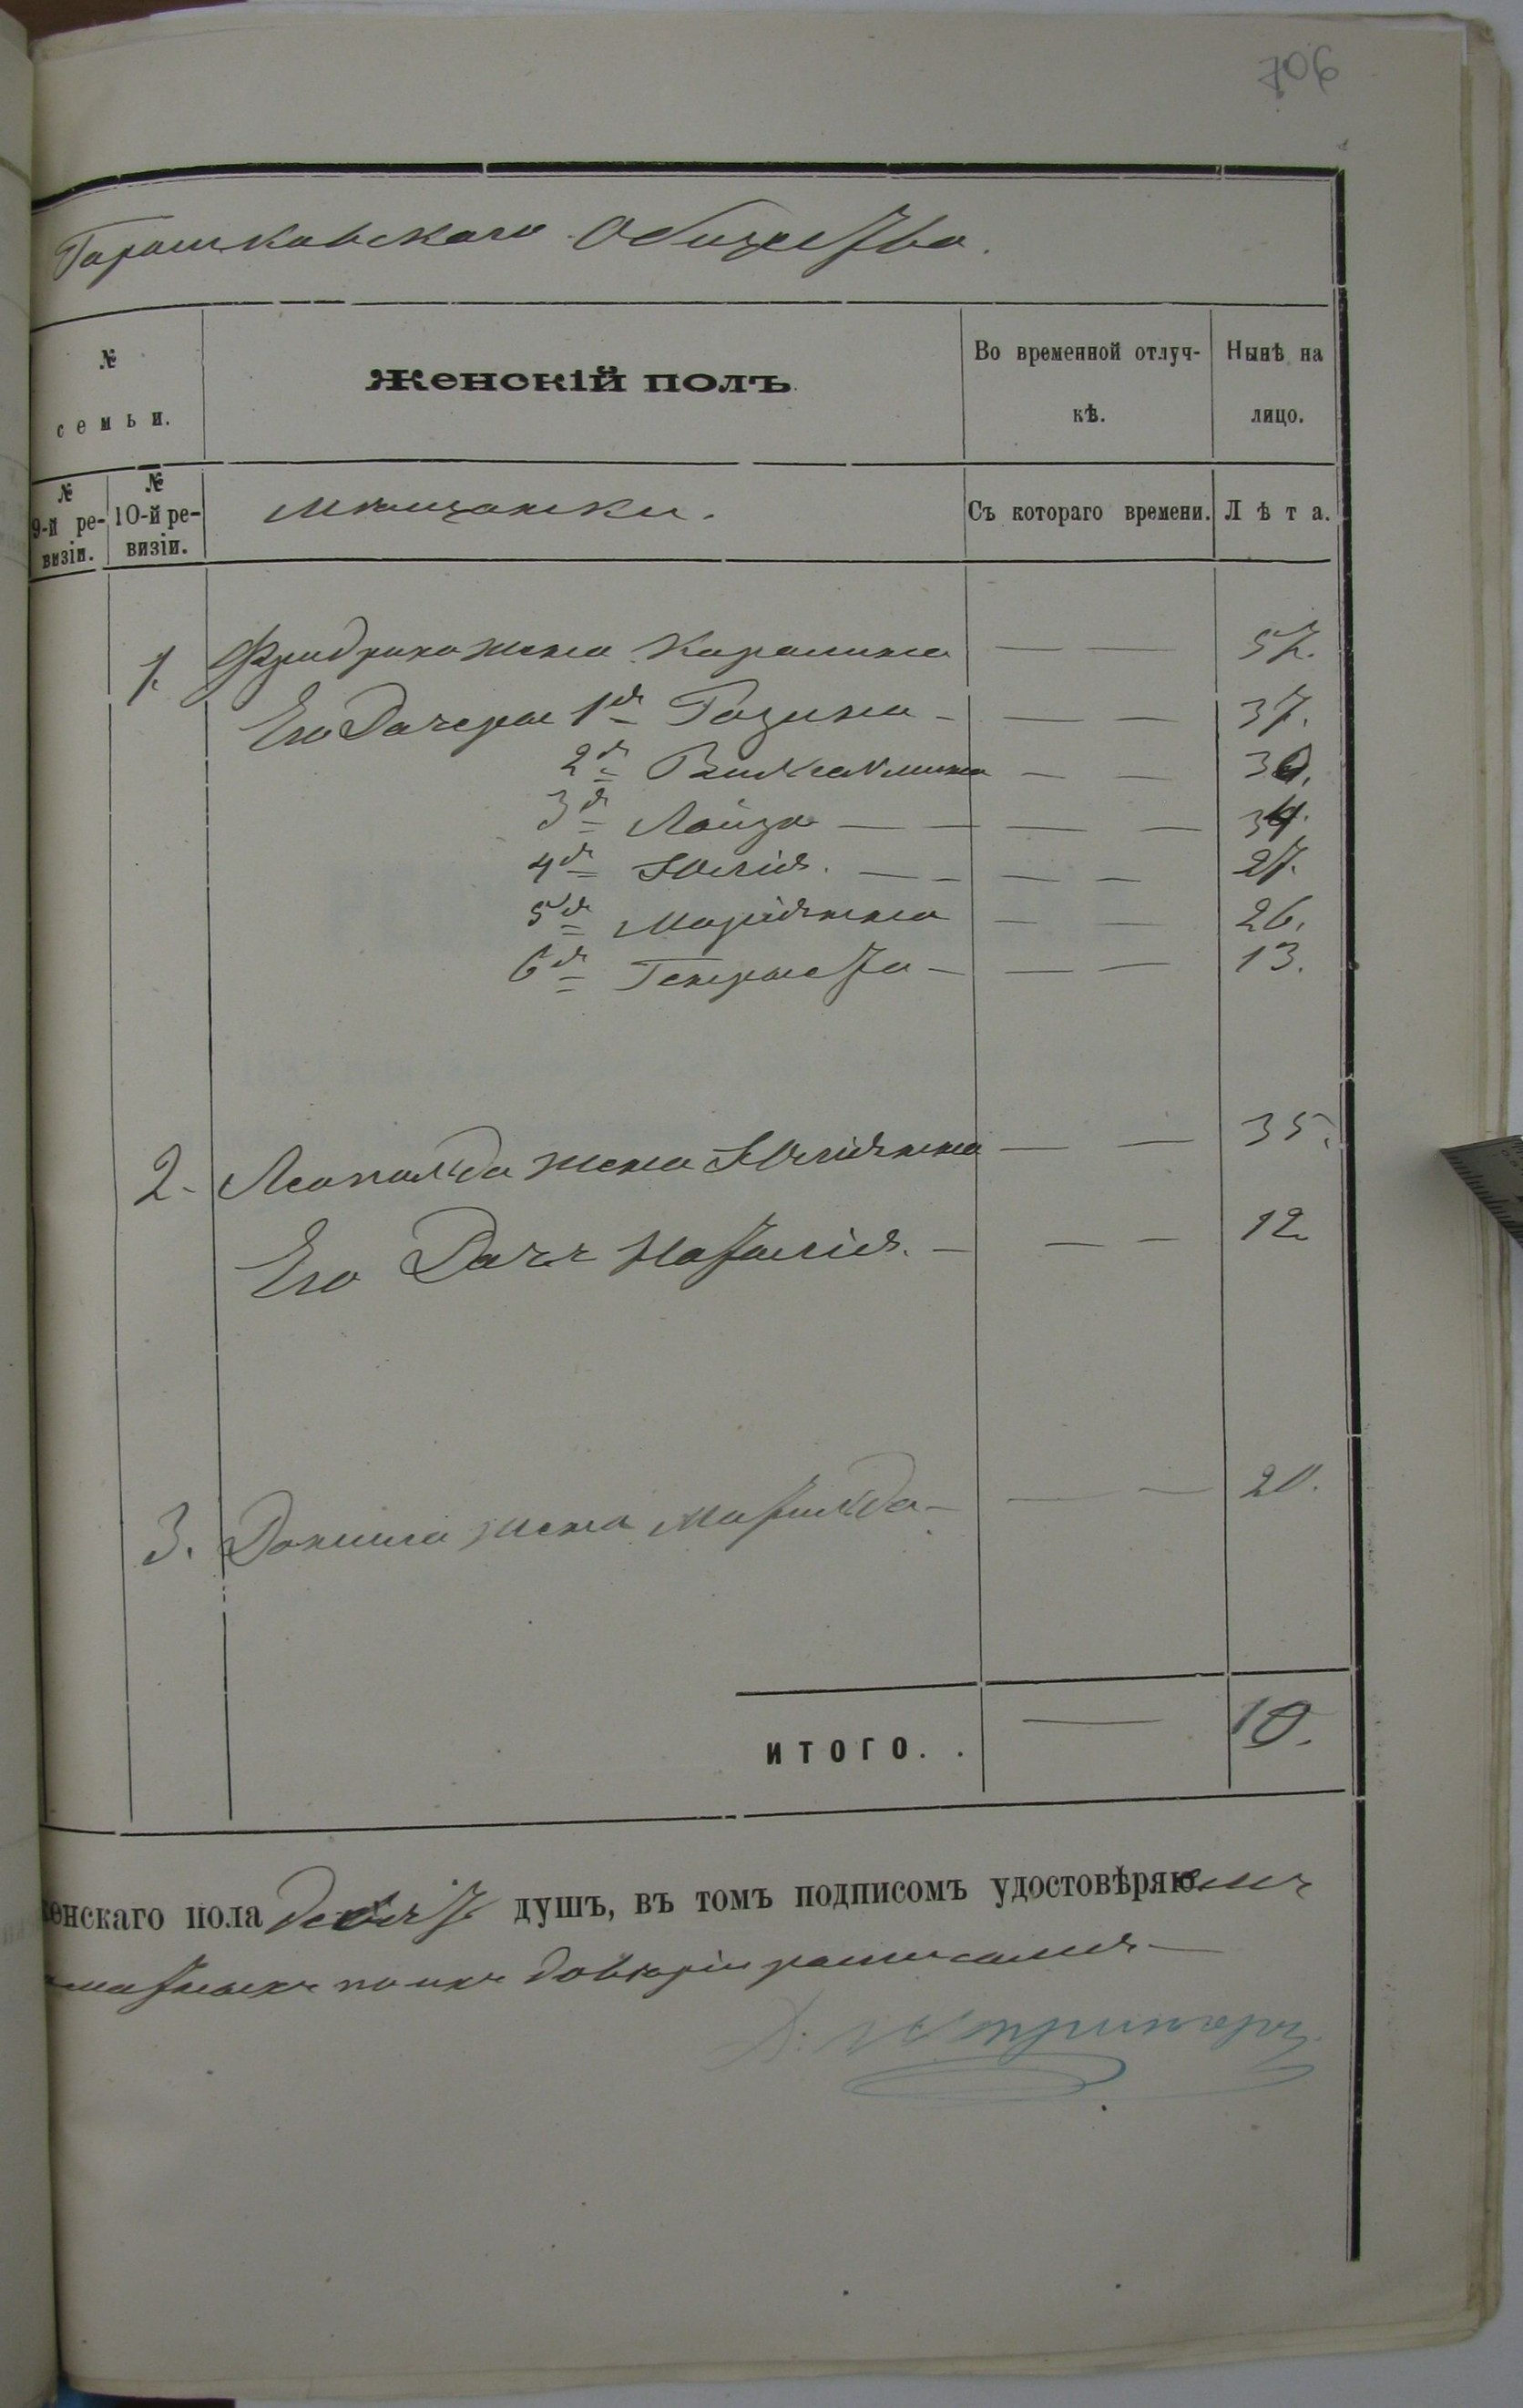 706
Горошковскаго Общества.
№ семьи.
Женскій полъ.
Во временной отлуч-
кѣ.
Нынѣ на
лицо.
№ 9-й ре-
визіи.
№ 10-й ре-
визіи.
Мѣщанки.
Съ котораго времени.
Лѣта.
1. Фридриха жена Каролина — — 57.
Его Дочери 1я Розина — — — 37.
2я Вильгельмина — — 30.
3я Лоиза — — — — 34.
4я Юлія. — — — — 27.
5я Маріянна — — 26.
6я Генріета — — — 13.
2. Леопольда жена Юліянна — — 35.
Его Дочь Наталія. — — — 12
3. Данила жена Матильда — — — 20.
ИТОГО. . — 10.
женскаго пола десять душъ, въ томъ подписомъ удостовѣряю
по ихъ довѣрію росписался —